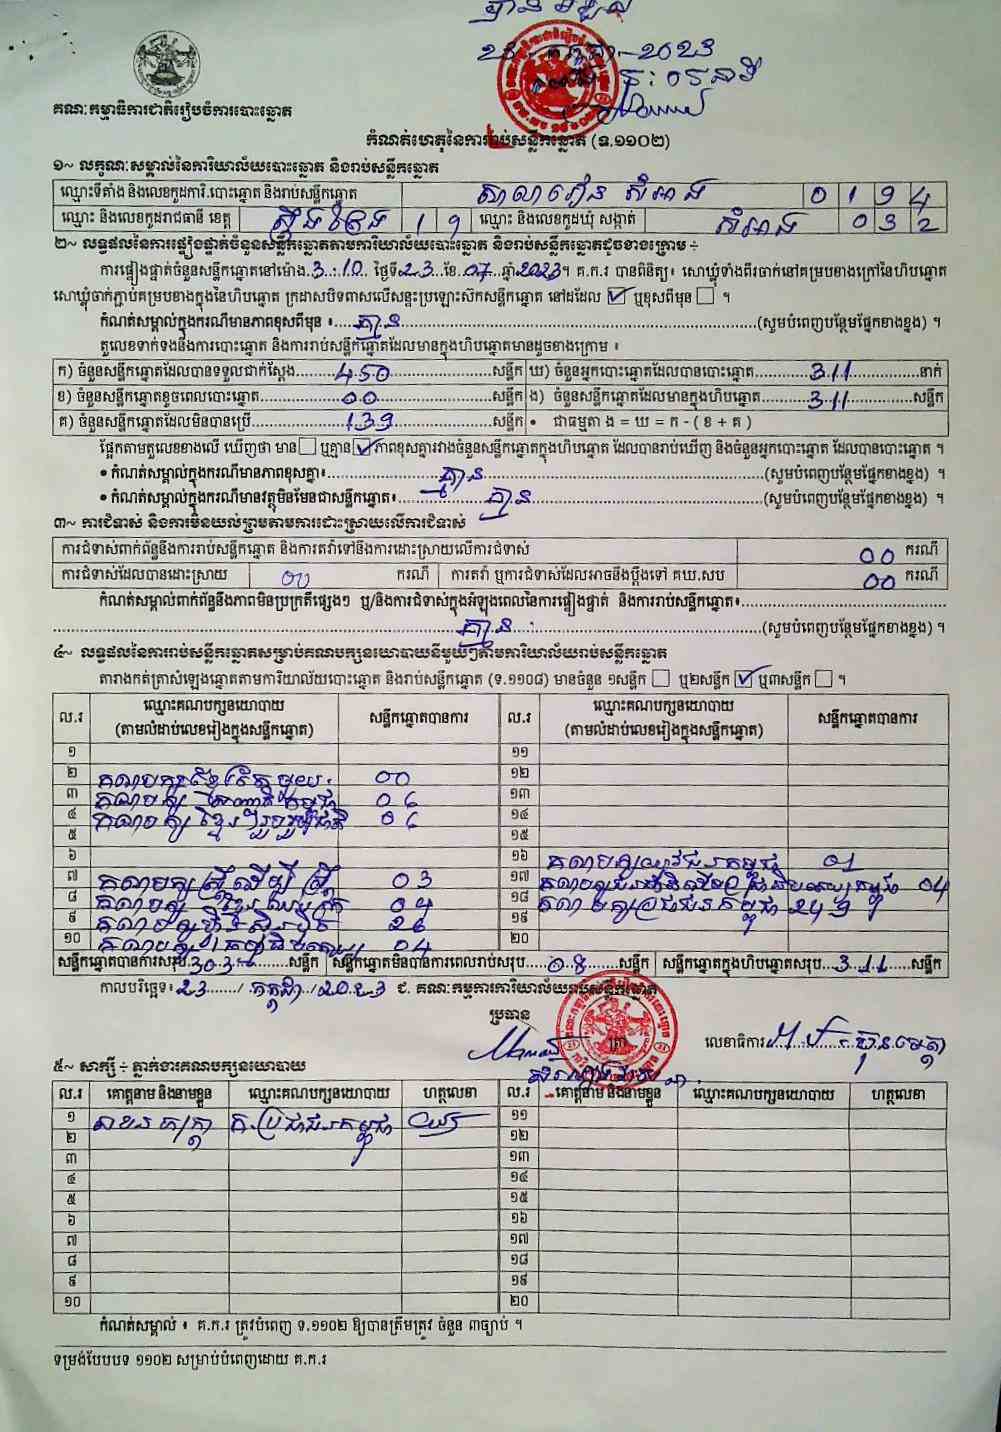 23 - កក្កដា - 2023
គណៈកម្មាធិការជាតិរៀបចំការបោះឆ្នោត
កំណត់ហេតុនៃការរាប់សន្លឹកឆ្នោត (ទ.១១០២)
១~ លក្ខណៈសម្គាល់នៃការិយាល័យបោះឆ្នោត និងរាប់សន្លឹកឆ្នោត
ឈ្មោះទីតាំង និងលេខកូដការិ.បោះឆ្នោត និងរាប់សន្លឹកឆ្នោត សាលារៀន សំអាង 0 1 9 4
ឈ្មោះ និងលេខកូដរាជធានី ខេត្ត ស្ទឹងត្រែង 1 9 ឈ្មោះ និងលេខកូដឃុំ សង្កាត់ សំអាង 0 3 2
២~ លទ្ធផលនៃការផ្ទៀងផ្ទាត់ចំនួនសន្លឹកឆ្នោតតាមការិយាល័យបោះឆ្នោត និងរាប់សន្លឹកឆ្នោតដូចខាងក្រោម ÷
ការផ្ទៀងផ្ទាត់ចំនួនសន្លឹកឆ្នោតនៅម៉ោង 3:10 ថ្ងៃទី 23 ខែ 07 ឆ្នាំ 2023 ។ គ.ក.រ បានពិនិត្យ៖ សោឃ្លុំទាំងពីរចាក់នៅគម្របខាងក្រៅនៃហិបឆ្នោត
សោឃ្លុំចាក់ភ្ជាប់គម្របខាងក្នុងនៃហិបឆ្នោត ក្រដាសបិទពាសលើសន្ទះប្រឡោះស៊កសន្លឹកឆ្នោត នៅដដែល ☑ ឬខុសពីមុន ☐ ។
កំណត់សម្គាល់ក្នុងករណីមានភាពខុសពីមុន ៖ គ្មាន (សូមបំពេញបន្ថែមផ្នែកខាងខ្នង) ។
តួលេខទាក់ទងនឹងការបោះឆ្នោត និងការរាប់សន្លឹកឆ្នោតដែលមានក្នុងហិបឆ្នោតមានដូចខាងក្រោម ៖
ក) ចំនួនសន្លឹកឆ្នោតដែលបានទទួលជាក់ស្តែង 450 សន្លឹក ឃ) ចំនួនអ្នកបោះឆ្នោតដែលបានបោះឆ្នោត 311 នាក់
ខ) ចំនួនសន្លឹកឆ្នោតខូចពេលបោះឆ្នោត 00 សន្លឹក ង) ចំនួនសន្លឹកឆ្នោតដែលមានក្នុងហិបឆ្នោត 311 សន្លឹក
គ) ចំនួនសន្លឹកឆ្នោតដែលមិនបានប្រើ 139 សន្លឹក • ជាធម្មតា ង = ឃ = ក - ( ខ + គ )
ផ្អែកតាមតួលេខខាងលើ ឃើញថា មាន ☐ ឬគ្មាន ☑ ភាពខុសគ្នារវាងចំនួនសន្លឹកឆ្នោតក្នុងហិបឆ្នោត ដែលបានរាប់ឃើញ និងចំនួនអ្នកបោះឆ្នោត ដែលបានបោះឆ្នោត ។
• កំណត់សម្គាល់ក្នុងករណីមានភាពខុសគ្នា៖ គ្មាន (សូមបំពេញបន្ថែមផ្នែកខាងខ្នង) ។
• កំណត់សម្គាល់ក្នុងករណីមានវត្ថុមិនមែនជាសន្លឹកឆ្នោត៖ គ្មាន (សូមបំពេញបន្ថែមផ្នែកខាងខ្នង) ។
៣~ ការជំទាស់ និងការមិនយល់ព្រមតាមការដោះស្រាយលើការជំទាស់
ការជំទាស់ពាក់ព័ន្ធនឹងការរាប់សន្លឹកឆ្នោត និងការតវ៉ាទៅនឹងការដោះស្រាយលើការជំទាស់ 00 ករណី
ការជំទាស់ដែលបានដោះស្រាយ 00 ករណី ការតវ៉ា ឬការជំទាស់ដែលអាចនឹងប្តឹងទៅ គឃ.សប 00 ករណី
កំណត់សម្គាល់ពាក់ព័ន្ធនឹងភាពមិនប្រក្រតីផ្សេងៗ ឬ/និងការជំទាស់ក្នុងអំឡុងពេលនៃការផ្ទៀងផ្ទាត់ និងការរាប់សន្លឹកឆ្នោត៖
គ្មាន (សូមបំពេញបន្ថែមផ្នែកខាងខ្នង) ។
៤~ លទ្ធផលនៃការរាប់សន្លឹកឆ្នោតសម្រាប់គណបក្សនយោបាយនីមួយៗតាមការិយាល័យរាប់សន្លឹកឆ្នោត
តារាងកត់ត្រាសំឡេងឆ្នោតតាមការិយាល័យបោះឆ្នោត និងរាប់សន្លឹកឆ្នោត (ទ.១១០៨) មានចំនួន ១សន្លឹក ☐ ឬ២សន្លឹក ☑ ឬ៣សន្លឹក ☐ ។
ល.រ ឈ្មោះគណបក្សនយោបាយ (តាមលំដាប់លេខរៀងក្នុងសន្លឹកឆ្នោត) សន្លឹកឆ្នោតបានការ ល.រ ឈ្មោះគណបក្សនយោបាយ (តាមលំដាប់លេខរៀងក្នុងសន្លឹកឆ្នោត) សន្លឹកឆ្នោតបានការ
១ ១១
២ គណបក្សខ្មែរតែមួយ 00 ១២
៣ គណបក្ស 06 ១៣
៤ គណបក្សខ្មែររួបរួមជាតិ 06 ១៤
៥ ១៥
៦ ១៦ គណបក្សយុវជនកម្ពុជា 01
៧ គណបក្សស្ត្រីដើម្បីស្ត្រី 03 ១៧ គណបក្ស 04
៨ គណបក្ស 04 ១៨ គណបក្សប្រជាជនកម្ពុជា 249
៩ គណបក្សហ៊្វុនស៊ិនប៉ិច 26 ១៩
១០ គណបក្ស 04 ២០
សន្លឹកឆ្នោតបានការសរុប 303 សន្លឹក សន្លឹកឆ្នោតមិនបានការពេលរាប់សរុប 08 សន្លឹក សន្លឹកឆ្នោតក្នុងហិបឆ្នោតសរុប 311 សន្លឹក
កាលបរិច្ឆេទ៖ 23 / កក្កដា / 2023 ជ. គណៈកម្មការការិយាល័យរាប់សន្លឹកឆ្នោត
ប្រធាន
លេខាធិការ
៥~ សាក្សី ÷ ភ្នាក់ងារគណបក្សនយោបាយ
ល.រ គោត្តនាម និងនាមខ្លួន ឈ្មោះគណបក្សនយោបាយ ហត្ថលេខា ល.រ គោត្តនាម និងនាមខ្លួន ឈ្មោះគណបក្សនយោបាយ ហត្ថលេខា
១ គ.ប្រជាជនកម្ពុជា ១១
២ ១២
៣ ១៣
៤ ១៤
៥ ១៥
៦ ១៦
៧ ១៧
៨ ១៨
៩ ១៩
១០ ២០
កំណត់សម្គាល់ ៖ គ.ក.រ ត្រូវបំពេញ ទ.១១០២ ឱ្យបានត្រឹមត្រូវ ចំនួន ៣ច្បាប់ ។
ទម្រង់បែបបទ ១១០២ សម្រាប់បំពេញដោយ គ.ក.រ